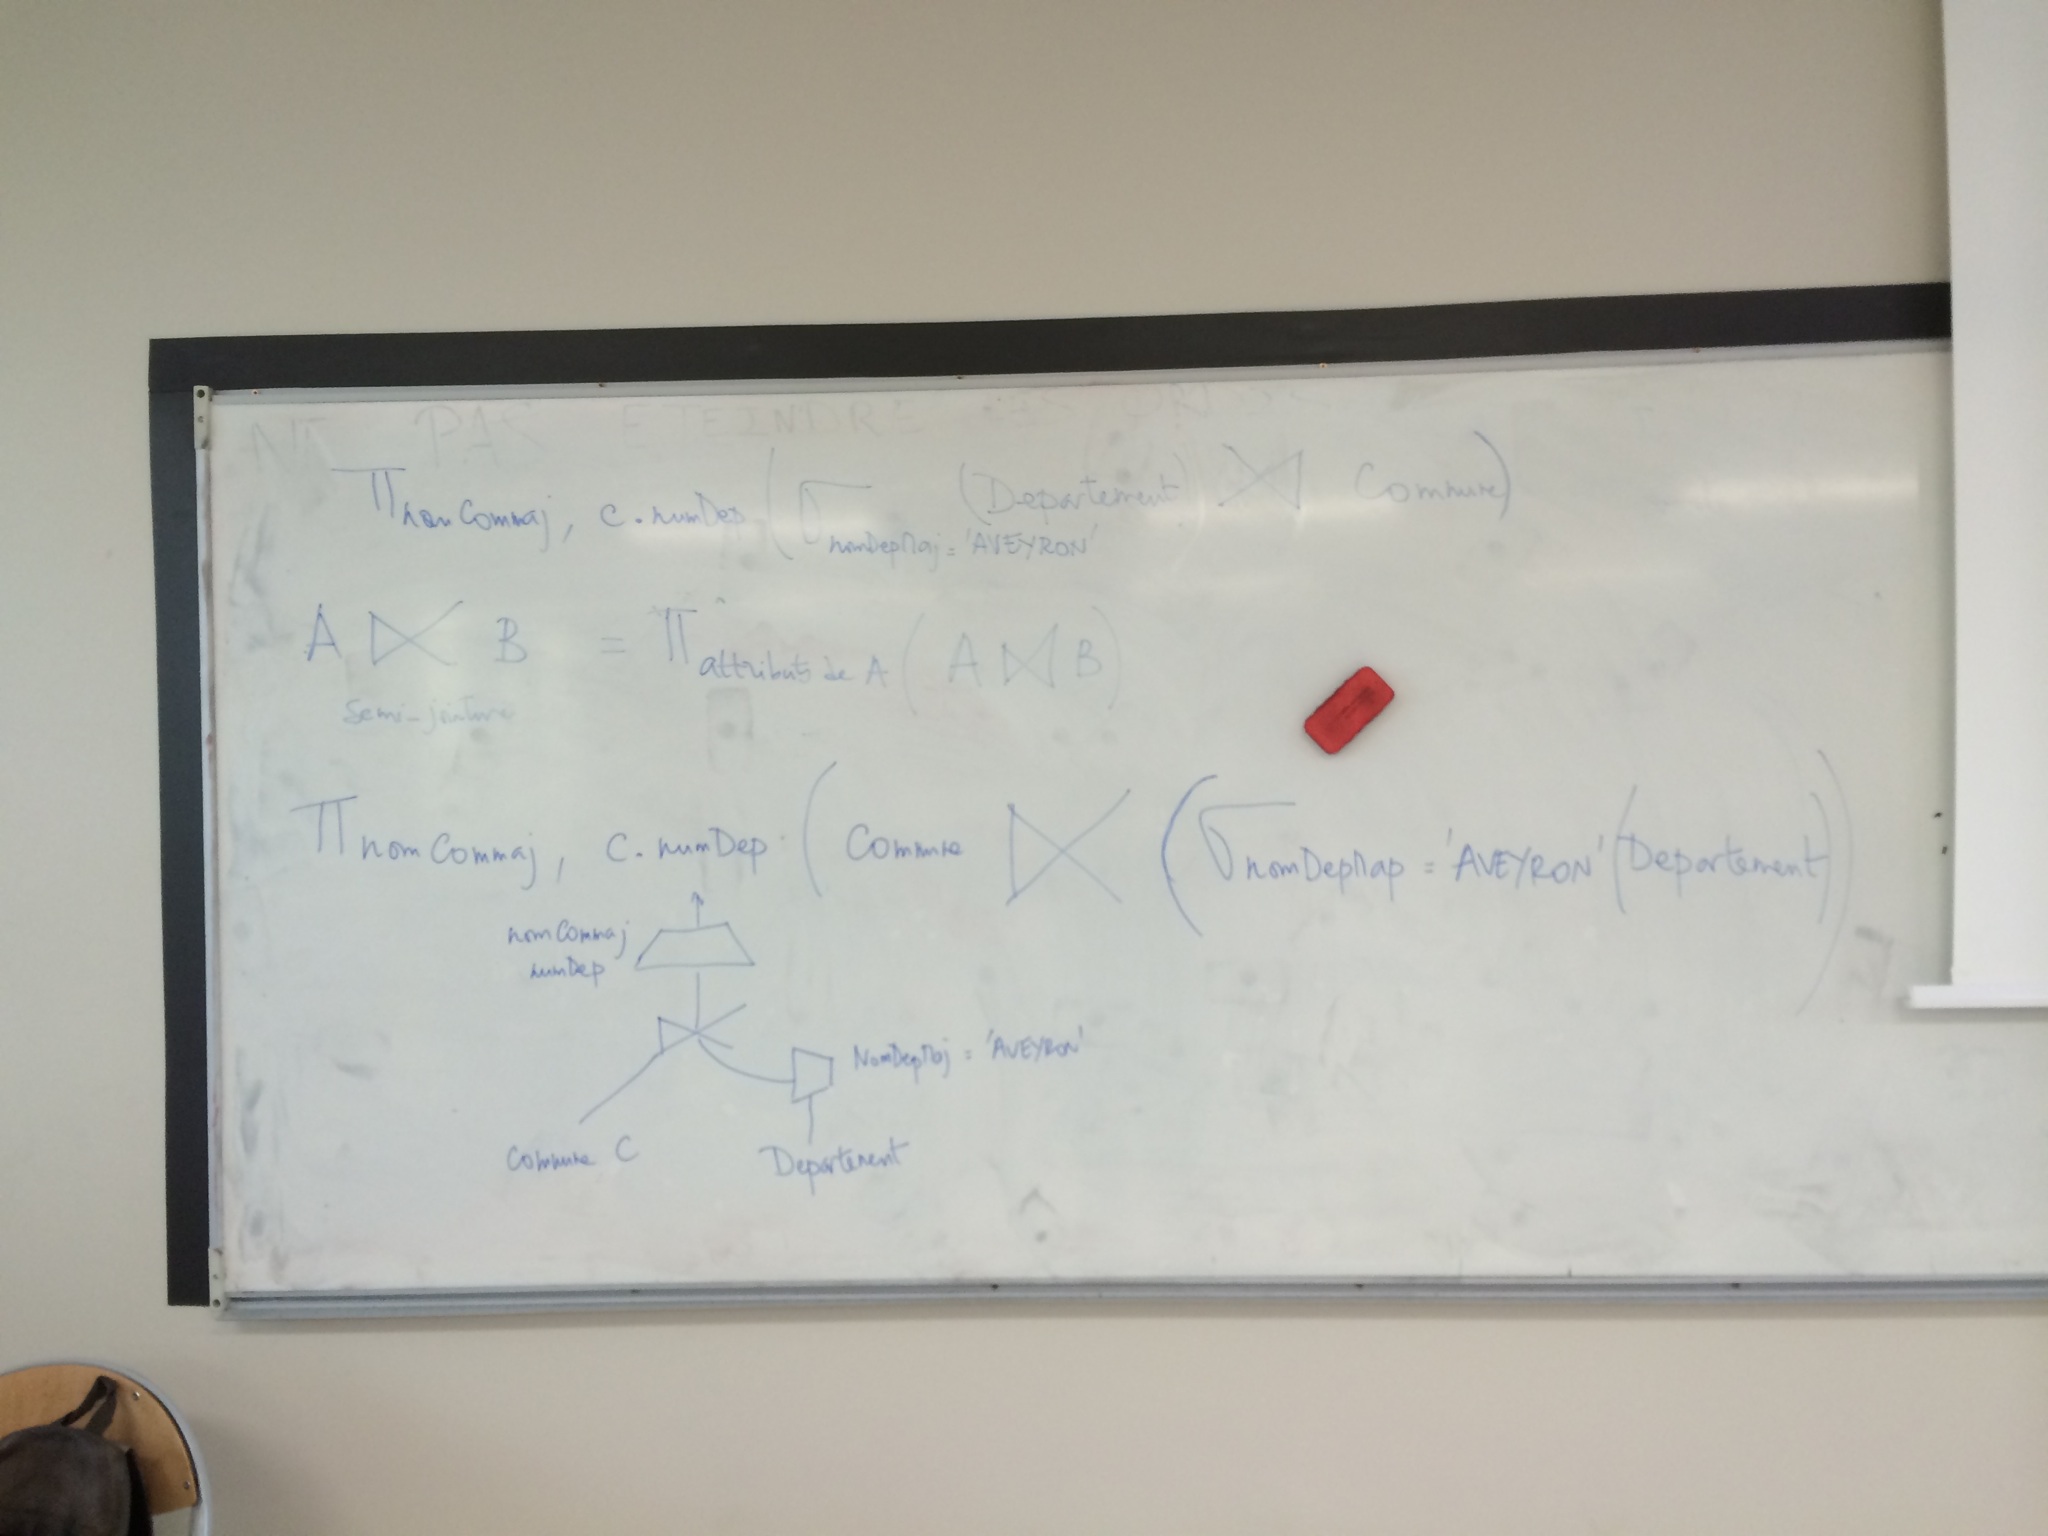 NE PAS ETEINDRE LES ORDIS
Π nomCommaj, c.numDep (σ nomDepMaj = 'AVEYRON' (Departement) ⋈ Commune)
A ⋉ B = Π attributs de A (A ⋈ B)
Semi-jointure
Π nomCommaj, c.numDep (Commune ⋉ (σ nomDepMap = 'AVEYRON' (Departement)))
nomCommaj
numDep
NomDepMaj = 'AVEYRON'
Commune C
Departement